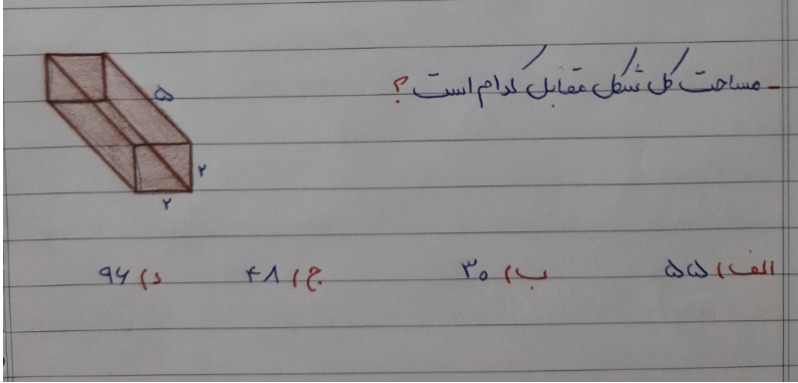 - مساحت کل شکل مقابل کدام است ؟
۵
۲
۲
الف) ۵۵ ب) ۳۰ ج) ۴۸ د) ۹۶